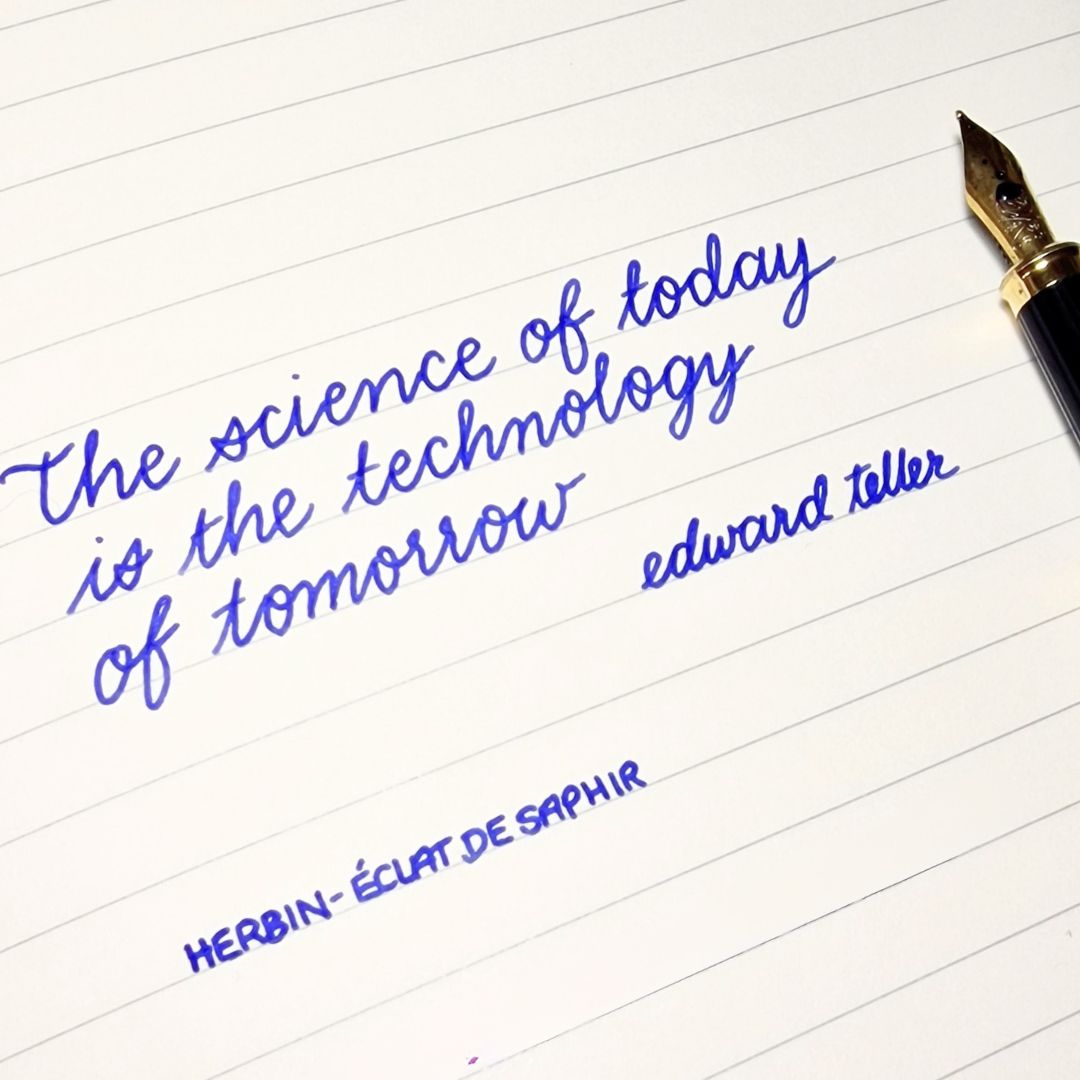 The science of today
is the technology
of tomorrow
edward teller
HERBIN-ÉCLAT DE SAPHIR